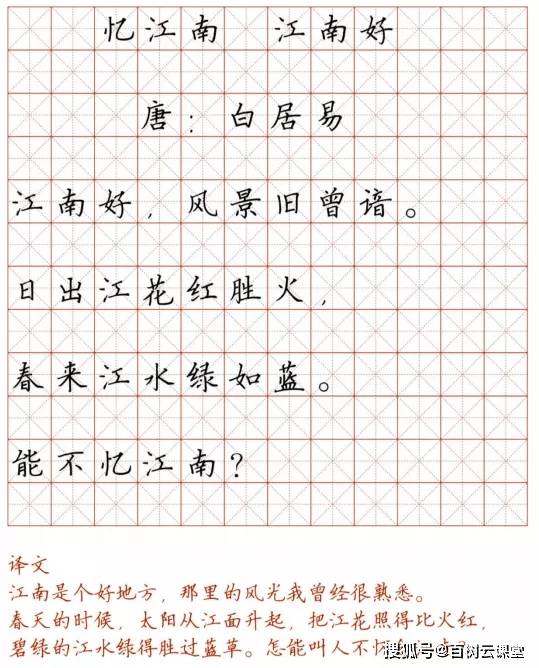 忆江南 江南好
唐：白居易
江南好，风景旧曾谙。
日出江花红胜火，
春来江水绿如蓝。
能不忆江南？
译文
江南是个好地方，那里的风光我曾经很熟悉。
春天的时候，太阳从江面升起，把江花照得比火红，
碧绿的江水绿得胜过蓝草。怎能叫人不怀
搜狐号@百树云课堂